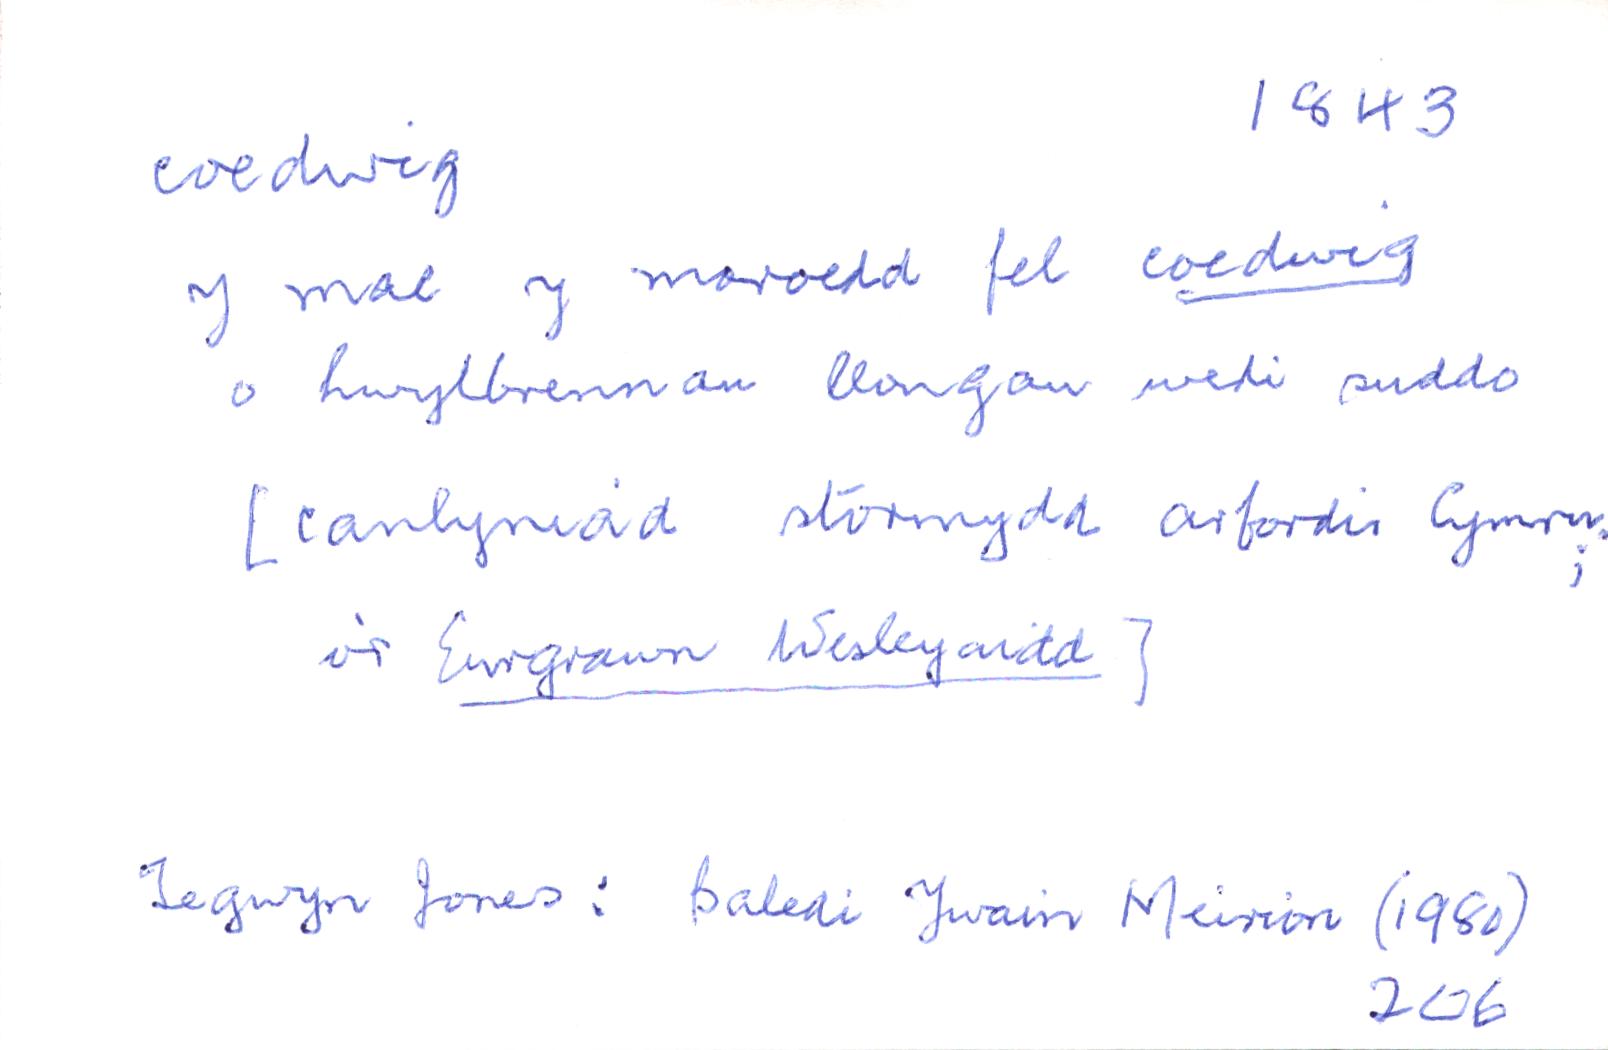 1843
coedwig
y mae y moroedd fel coedwig
o hwylbrennau llongau wedi suddo
[canlyniad stormydd arfordir Cymru;
o'r Eurgrawn Wesleyaidd]
Tegwyn Jones: Baledi Ywain Meirion (1980)
206